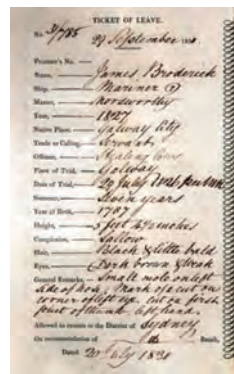 TICKET OF LEAVE.
No. 31/785
29 September 1831
Prisoner's No. —
Name, James Broderick
Ship, Mariner (2)
Master, Norsworthy
Year, 1827
Native Place, Galway City
Trade or Calling, Servant
Offence, Stealing
Place of Trial, Galway
Date of Trial, 29 July 1826
Sentence, Seven years
Year of Birth, 1787
Height, 5 feet
Complexion, Sallow
Hair, Black & little bald
Eyes, Dark brown & weak
General Remarks, Small mole on left
side of nose, Mark of a cut on
corner of left eye, cut on first
joint of thumb left hand.
Allowed to remain in the District of Sydney
On recommendation of Bench,
Dated 20 July 1831